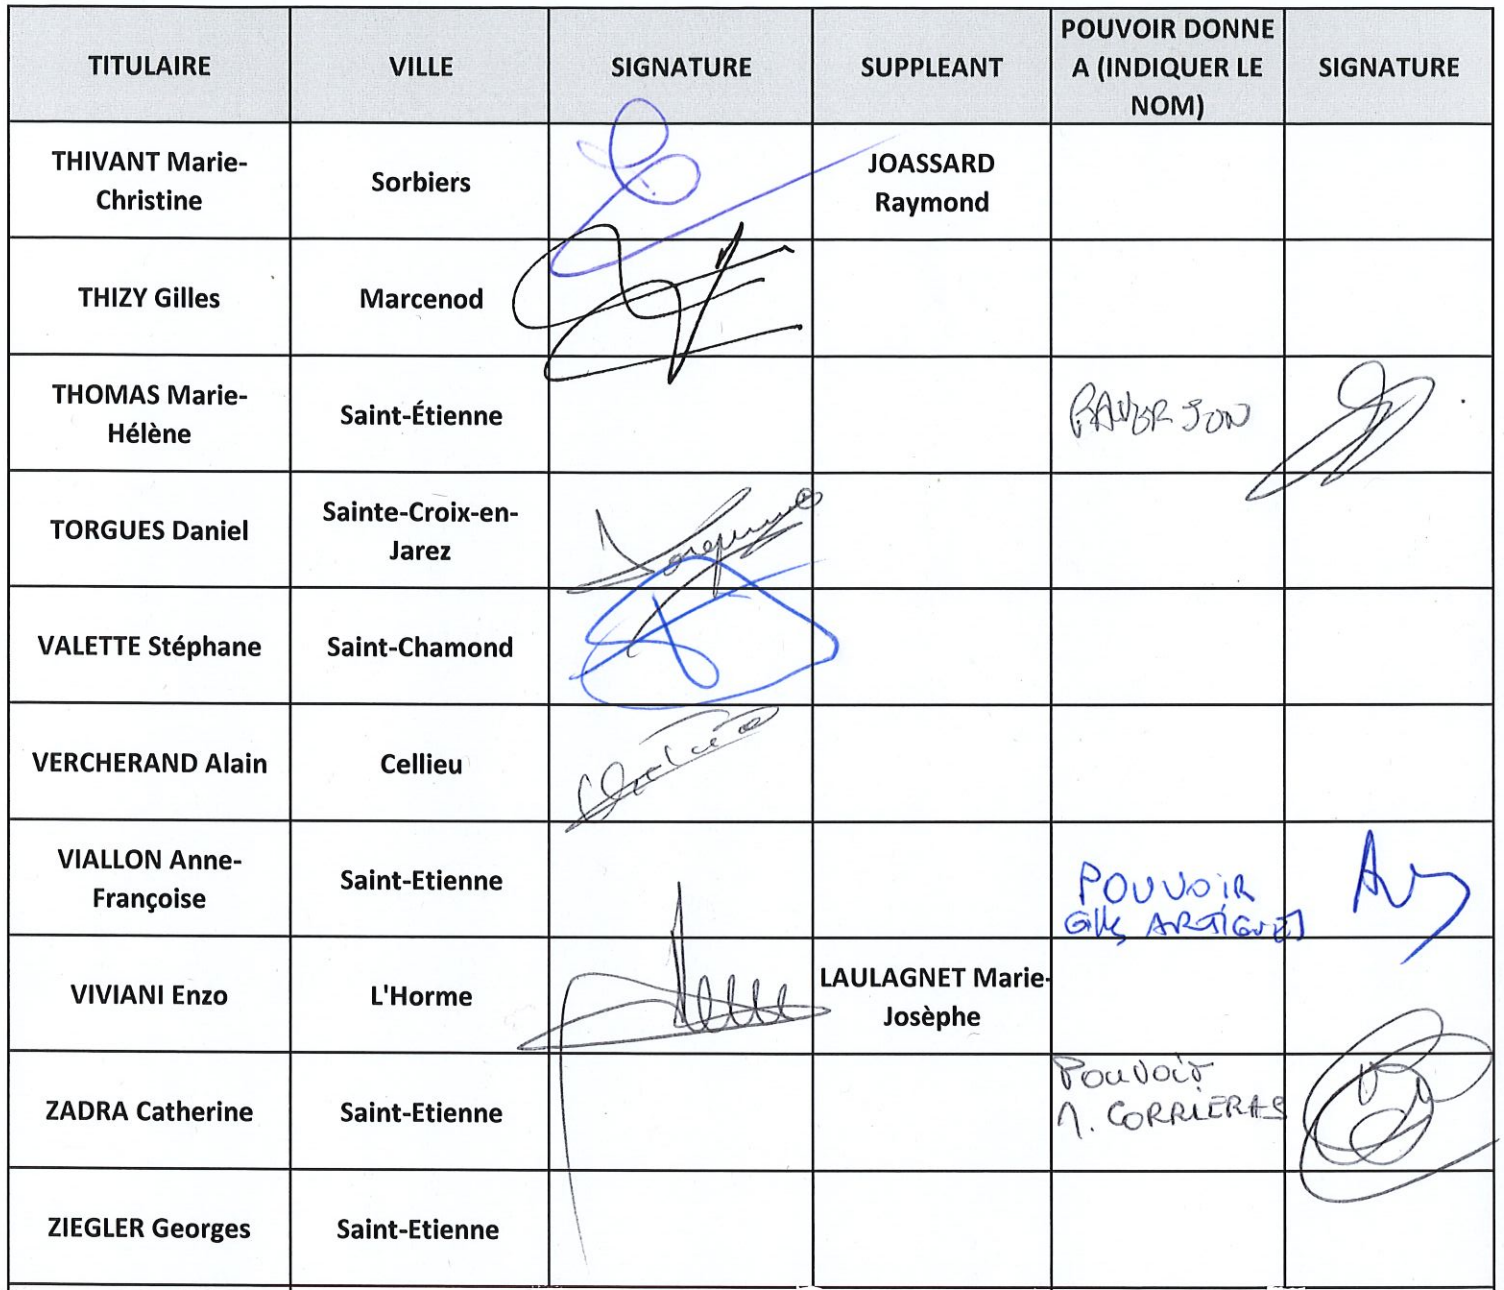 TITULAIRE
VILLE
SIGNATURE
SUPPLEANT
POUVOIR DONNE
A (INDIQUER LE
NOM)
SIGNATURE
THIVANT Marie-
Christine
Sorbiers
JOASSARD
Raymond
THIZY Gilles
Marcenod
THOMAS Marie-
Hélène
Saint-Étienne
TORGUES Daniel
Sainte-Croix-en-
Jarez
VALETTE Stéphane
Saint-Chamond
VERCHERAND Alain
Cellieu
VIALLON Anne-
Françoise
Saint-Etienne
POUVOIR
Gilles ARTIGUES
VIVIANI Enzo
L'Horme
LAULAGNET Marie-
Josèphe
ZADRA Catherine
Saint-Etienne
Pouvoir
CORRIERAS
ZIEGLER Georges
Saint-Etienne